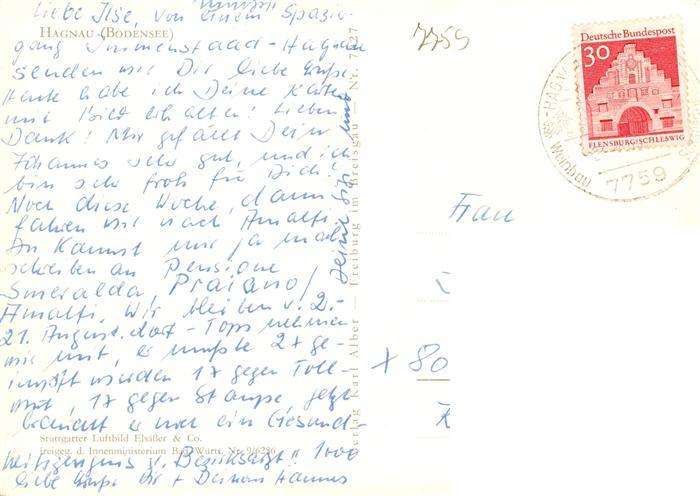 Liebe Ilse, von einem Spazier-
HAGNAU (BODENSEE)
gang Immenstaad-Hagnau
senden wir Dir liebe Grüße.
Heute habe ich Deine Karte
und Brief erhalten! Lieben
Dank! Mir gefällt Dein
Johannes sehr gut, und ich
bin sehr froh für Dich!
Noch diese Woche, dann
fahren wir nach Amalfi.
Du kannst mir ja mal
schreiben an Pensione
Smeralda, Praiano/
Amalfi. Wir bleiben v. 2.-
21. August dort - Topsy nehmen
wir mit, er mußte 2x ge-
impft werden 1x gegen Toll-
wut, 1x gegen Staupe, jetzt
braucht er noch ein Gesund-
Stuttgarter Luftbild Elsäßer & Co.
freigeg. d. Innenministerium Bad.-Württ. Nr. 9/6286
heitszeugnis v. Bezirksarzt!! 1000
liebe Grüße Dir + Deinem Hannes
und
Deine
Verlag Karl Alber — Freiburg im Breisgau — Nr.
7759
Deutsche Bundespost
30
FLENSBURG/SCHLESWIG
HAGNAU
Wangen
7759
Frau
x 80